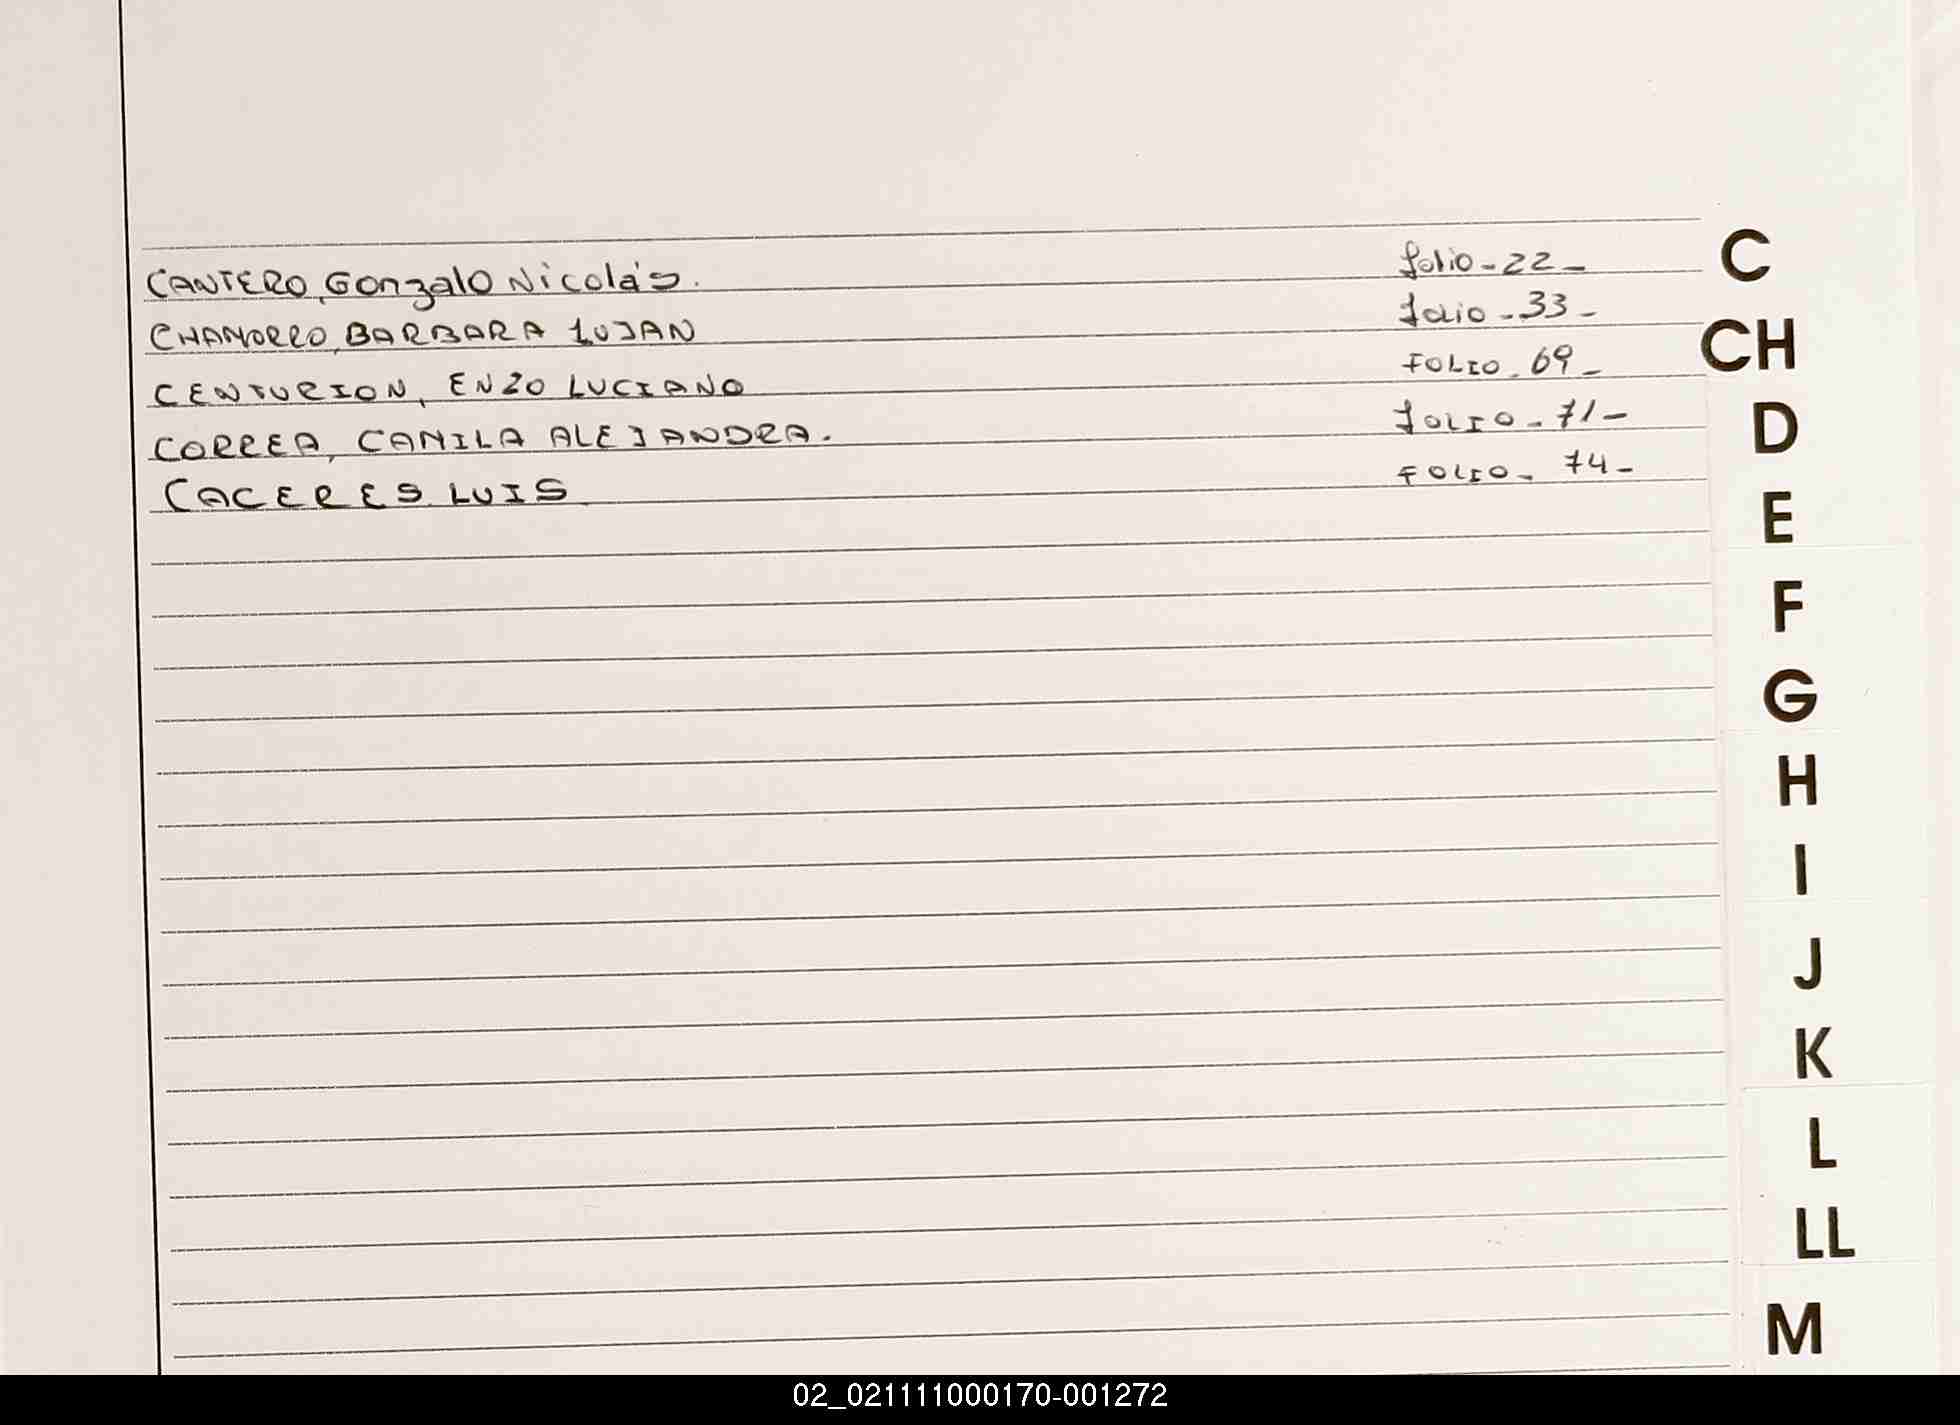 CANTERO, Gonzalo Nicolás. folio - 22 -
CHAMORRO, BARBARA LUJAN folio - 33 -
CENTURION, ENZO LUCIANO FOLIO - 69 -
CORREA, CAMILA ALEJANDRA. FOLIO - 71 -
CACERES LUIS FOLIO - 74 -
C
CH
D
E
F
G
H
I
J
K
L
LL
M
02_021111000170-001272